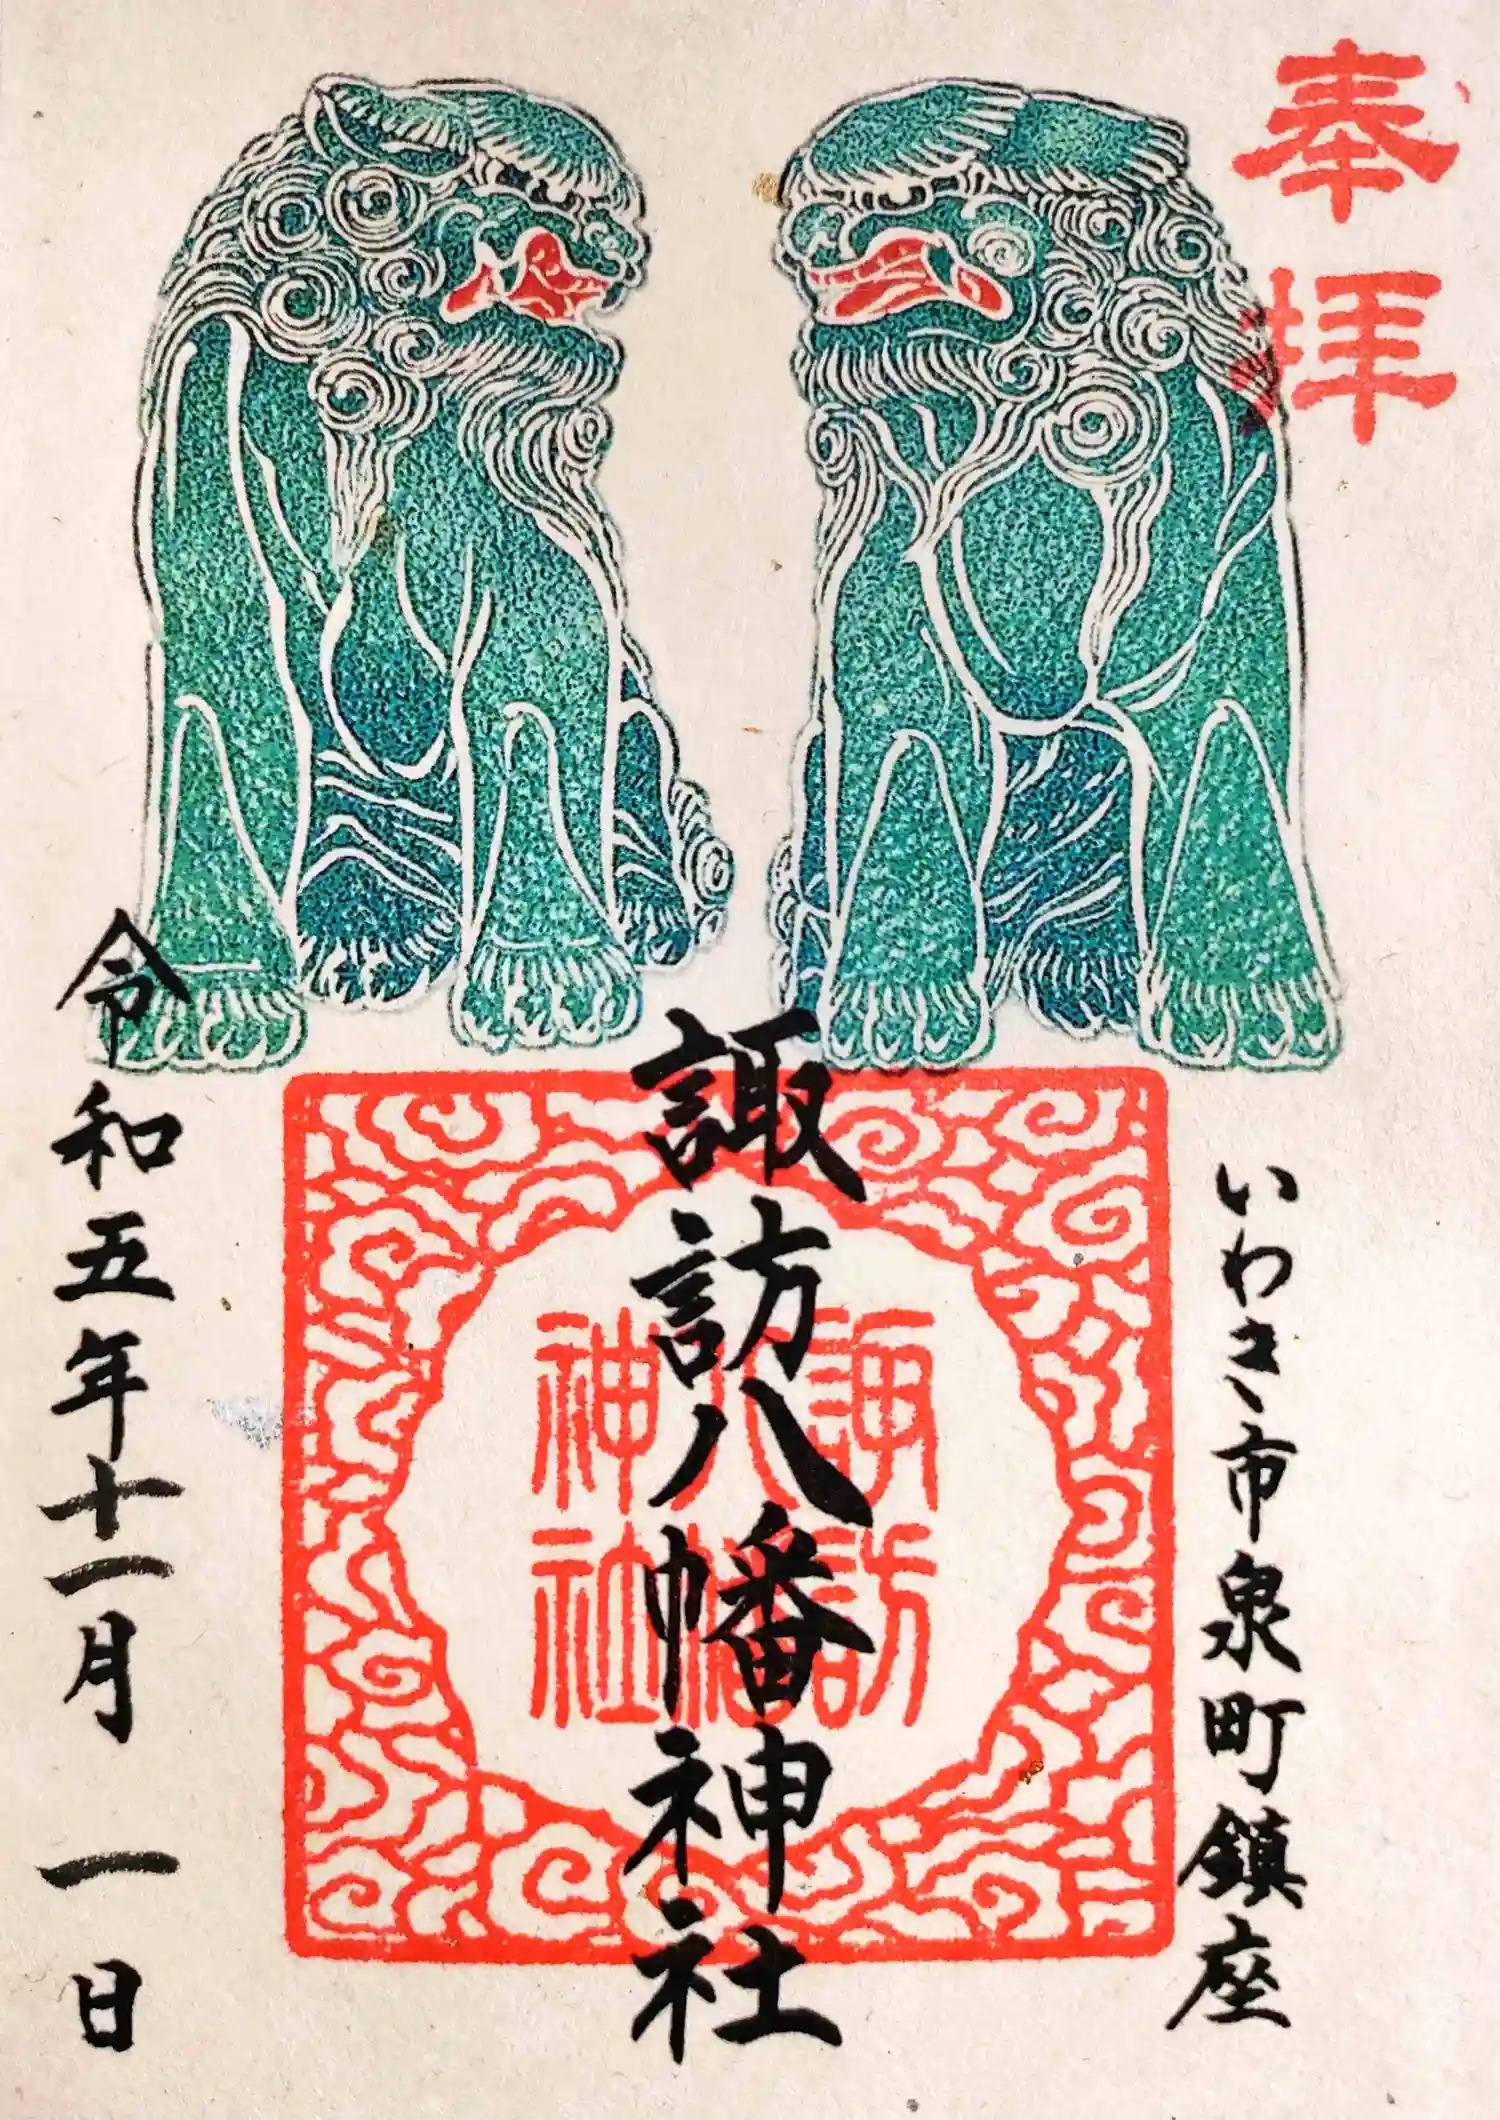 奉拝
いわき市泉町鎮座
諏訪八幡神社
諏訪
八幡
神社
令和五年十一月 一日